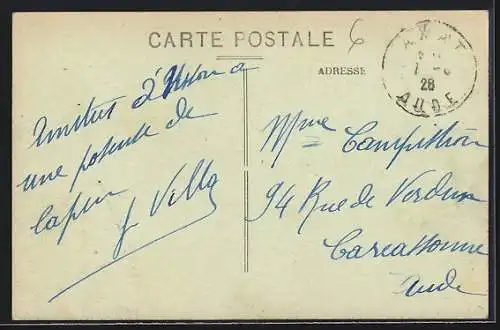 CARTE POSTALE
6
ADRESSE
AXAT
28
AUDE
Amities d'Usson a
une patente de
lapin
J Villa
Mme
94 Rue de Verdun
Carcassonne
Aude